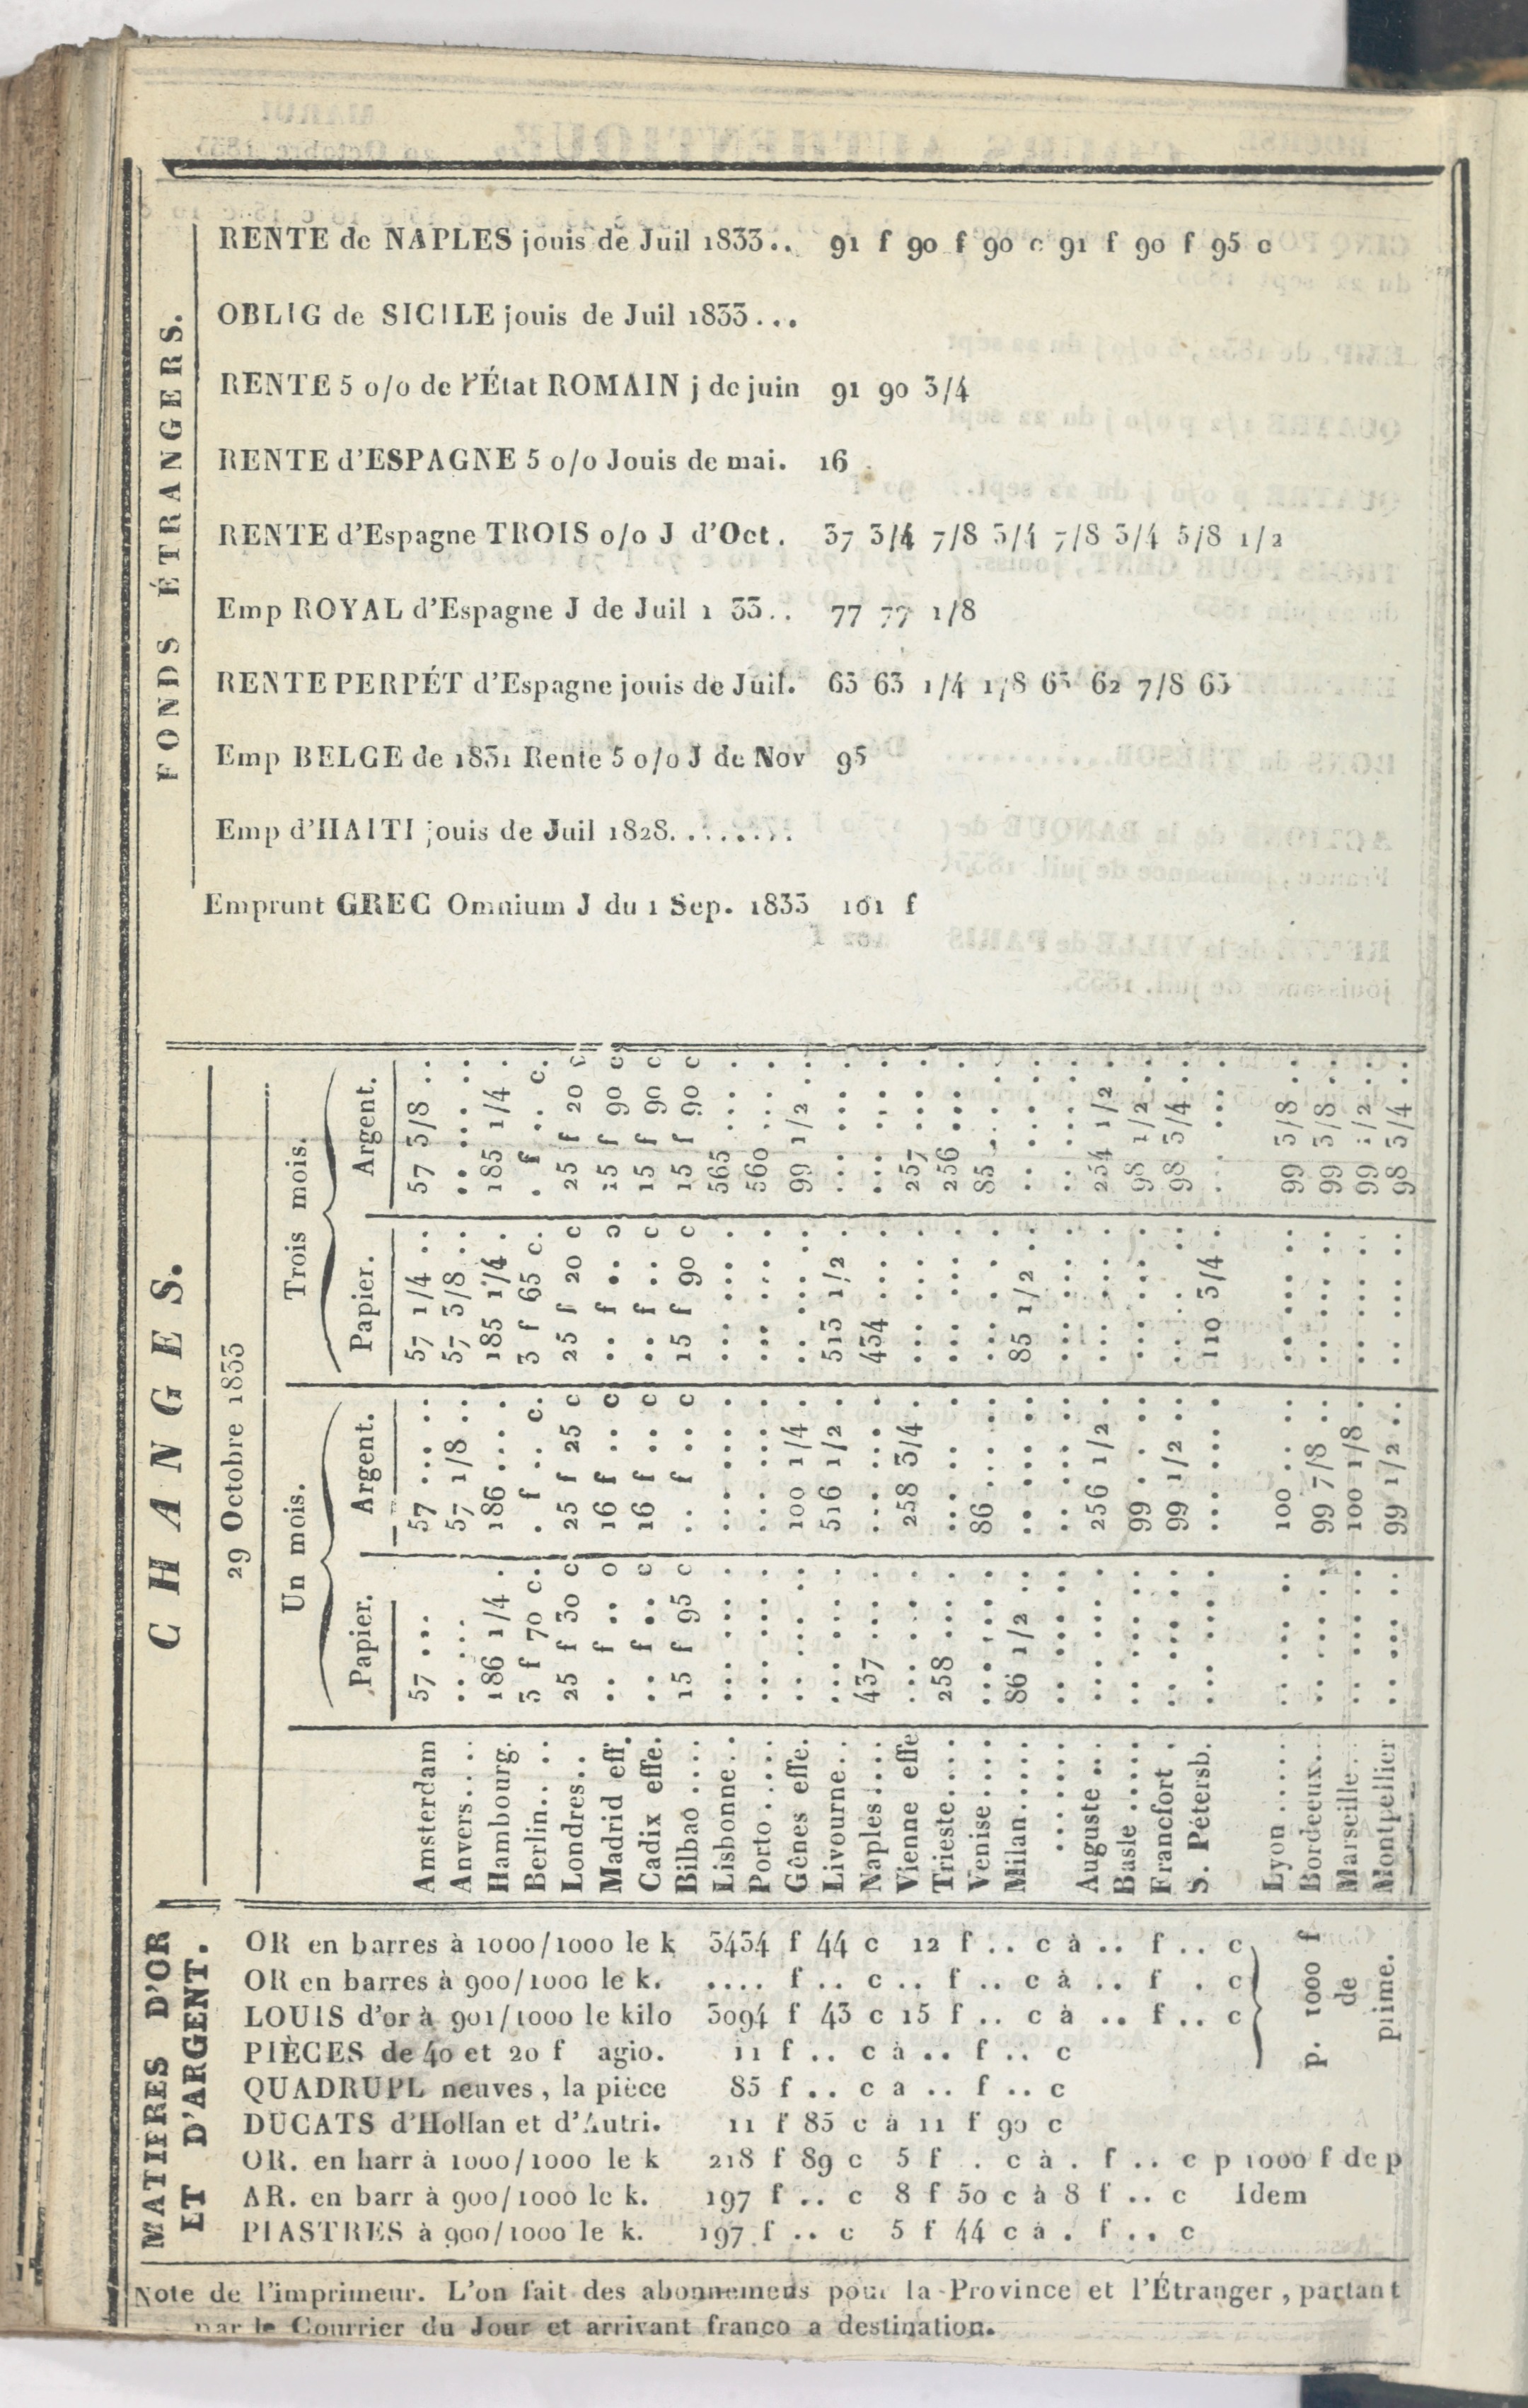 FONDS ÉTRANGERS.
RENTE de NAPLES jouis de Juil 1833.. 91 f 90 f 90 c 91 f 90 f 95 c
OBLIG de SICILE jouis de Juil 1833...
RENTE 5 o/o de l'État ROMAIN j de juin 91 90 3/4
RENTE d'ESPAGNE 5 o/o Jouis de mai. 16
RENTE d'Espagne TROIS o/o J d'Oct. 37 3/4 7/8 3/4 7/8 3/4 5/8 1/2
Emp ROYAL d'Espagne J de Juil 1 33.. 77 77 1/8
RENTE PERPÉT d'Espagne jouis de Juil. 63 63 1/4 1/8 63 62 7/8 63
Emp BELGE de 1831 Rente 5 o/o J de Nov 95
Emp d'HAITI jouis de Juil 1828........
Emprunt GREC Omnium J du 1 Sep. 1833 101 f
CHANGES.
29 Octobre 1833
Un mois. Trois mois.
Papier. Argent. Papier. Argent.
Amsterdam 57 ... 57 .... 57 1/4 .. 57 3/8 ..
Anvers.... ..... 57 1/8 .. 57 3/8 .. .....
Hambourg. 186 1/4 . 186 ... . 185 1/4 . 185 1/4 .
Berlin.... 3 f 70 c. . f .. c. 3 f 65 c. . f .. c.
Londres... 25 f 30 c 25 f 25 c 25 f 20 c 25 f 20 c
Madrid eff. .. f .. c 16 f .. c .. f .. c 15 f 90 c
Cadix effe. .. f .. c 16 f .. c .. f .. c 15 f 90 c
Bilbao .... 15 f 95 c .. f .. c 15 f 90 c 15 f 90 c
Lisbonne.. ... ... . ... ... . ... ... . 565 ... .
Porto ..... ... ... . ... ... . ... ... . 560 ... .
Gênes effe. .. ... .. 100 1/4 . .. ... .. 99 1/2 ..
Livourne... ... ... . 516 1/2 . 513 1/2 . ... ... .
Naples .... 437 ... . ... ... . 434 ... . ... ... .
Vienne effe ... ... . 258 3/4 . ... ... . 257 ... .
Trieste.... 258 ... . ... ... . ... ... . 256 ... .
Venise .... ... ... . 86 ... .. ... ... . 85 . ..
Milan..... 86 1/2 .. .. ... .. 85 1/2 .. .. ... ..
....... .. ... .. .. ... .. ... ... . .. ... ..
Auguste ... ... ... . 256 1/2 . ... ... . 254 1/2 .
Basle ..... .. ... .. 99 . ... .. ... .. 98 1/2 ..
Francfort . .. ... .. 99 1/2 .. .. ... .. 98 3/4 ..
S. Pétersb. ... ... . ... ... . 110 3/4 . .. ... .
Lyon ..... .. ... .. 100 ... .. .. ... .. 99 3/8 ..
Bordeeux... .. ... .. 99 7/8 .. .. ... .. 99 3/8 ..
Marseille.. .. ... .. 100 1/8 . .. ... .. 99 1/2 ..
Montpellier .. ... .. 99 1/2 .. .. ... .. 98 3/4 ..
MATIERES D'OR
ET D'ARGENT.
OR en barres à 1000/1000 le k 3434 f 44 c 12 f .. c à .. f .. c
OR en barres à 900/1000 le k. .... f .. c .. f .. c à .. f . c
LOUIS d'or à 901/1000 le kilo 3094 f 43 c 15 f .. c à .. f .. c
PIÈCES de 40 et 20 f agio. 11 f .. c à .. f .. c
p. 1000 f
de
prime.
QUADRUPL neuves, la pièce 85 f .. c a .. f .. c
DUCATS d'Hollan et d'Autri. 11 f 85 c à 11 f 90 c
OR. en barr à 1000/1000 le k 218 f 89 c 5 f . c à . f .. c p 1000 f de p
AR. en barr à 900/1000 le k. 197 f .. c 8 f 50 c à 8 f .. c Idem
PIASTRES à 900/1000 le k. 197 f .. c 5 f 44 c à . f .. c
Note de l'imprimeur. L'on fait des abonnemens pour la Province et l'Étranger, partant
par le Courrier du Jour et arrivant franco a destination.